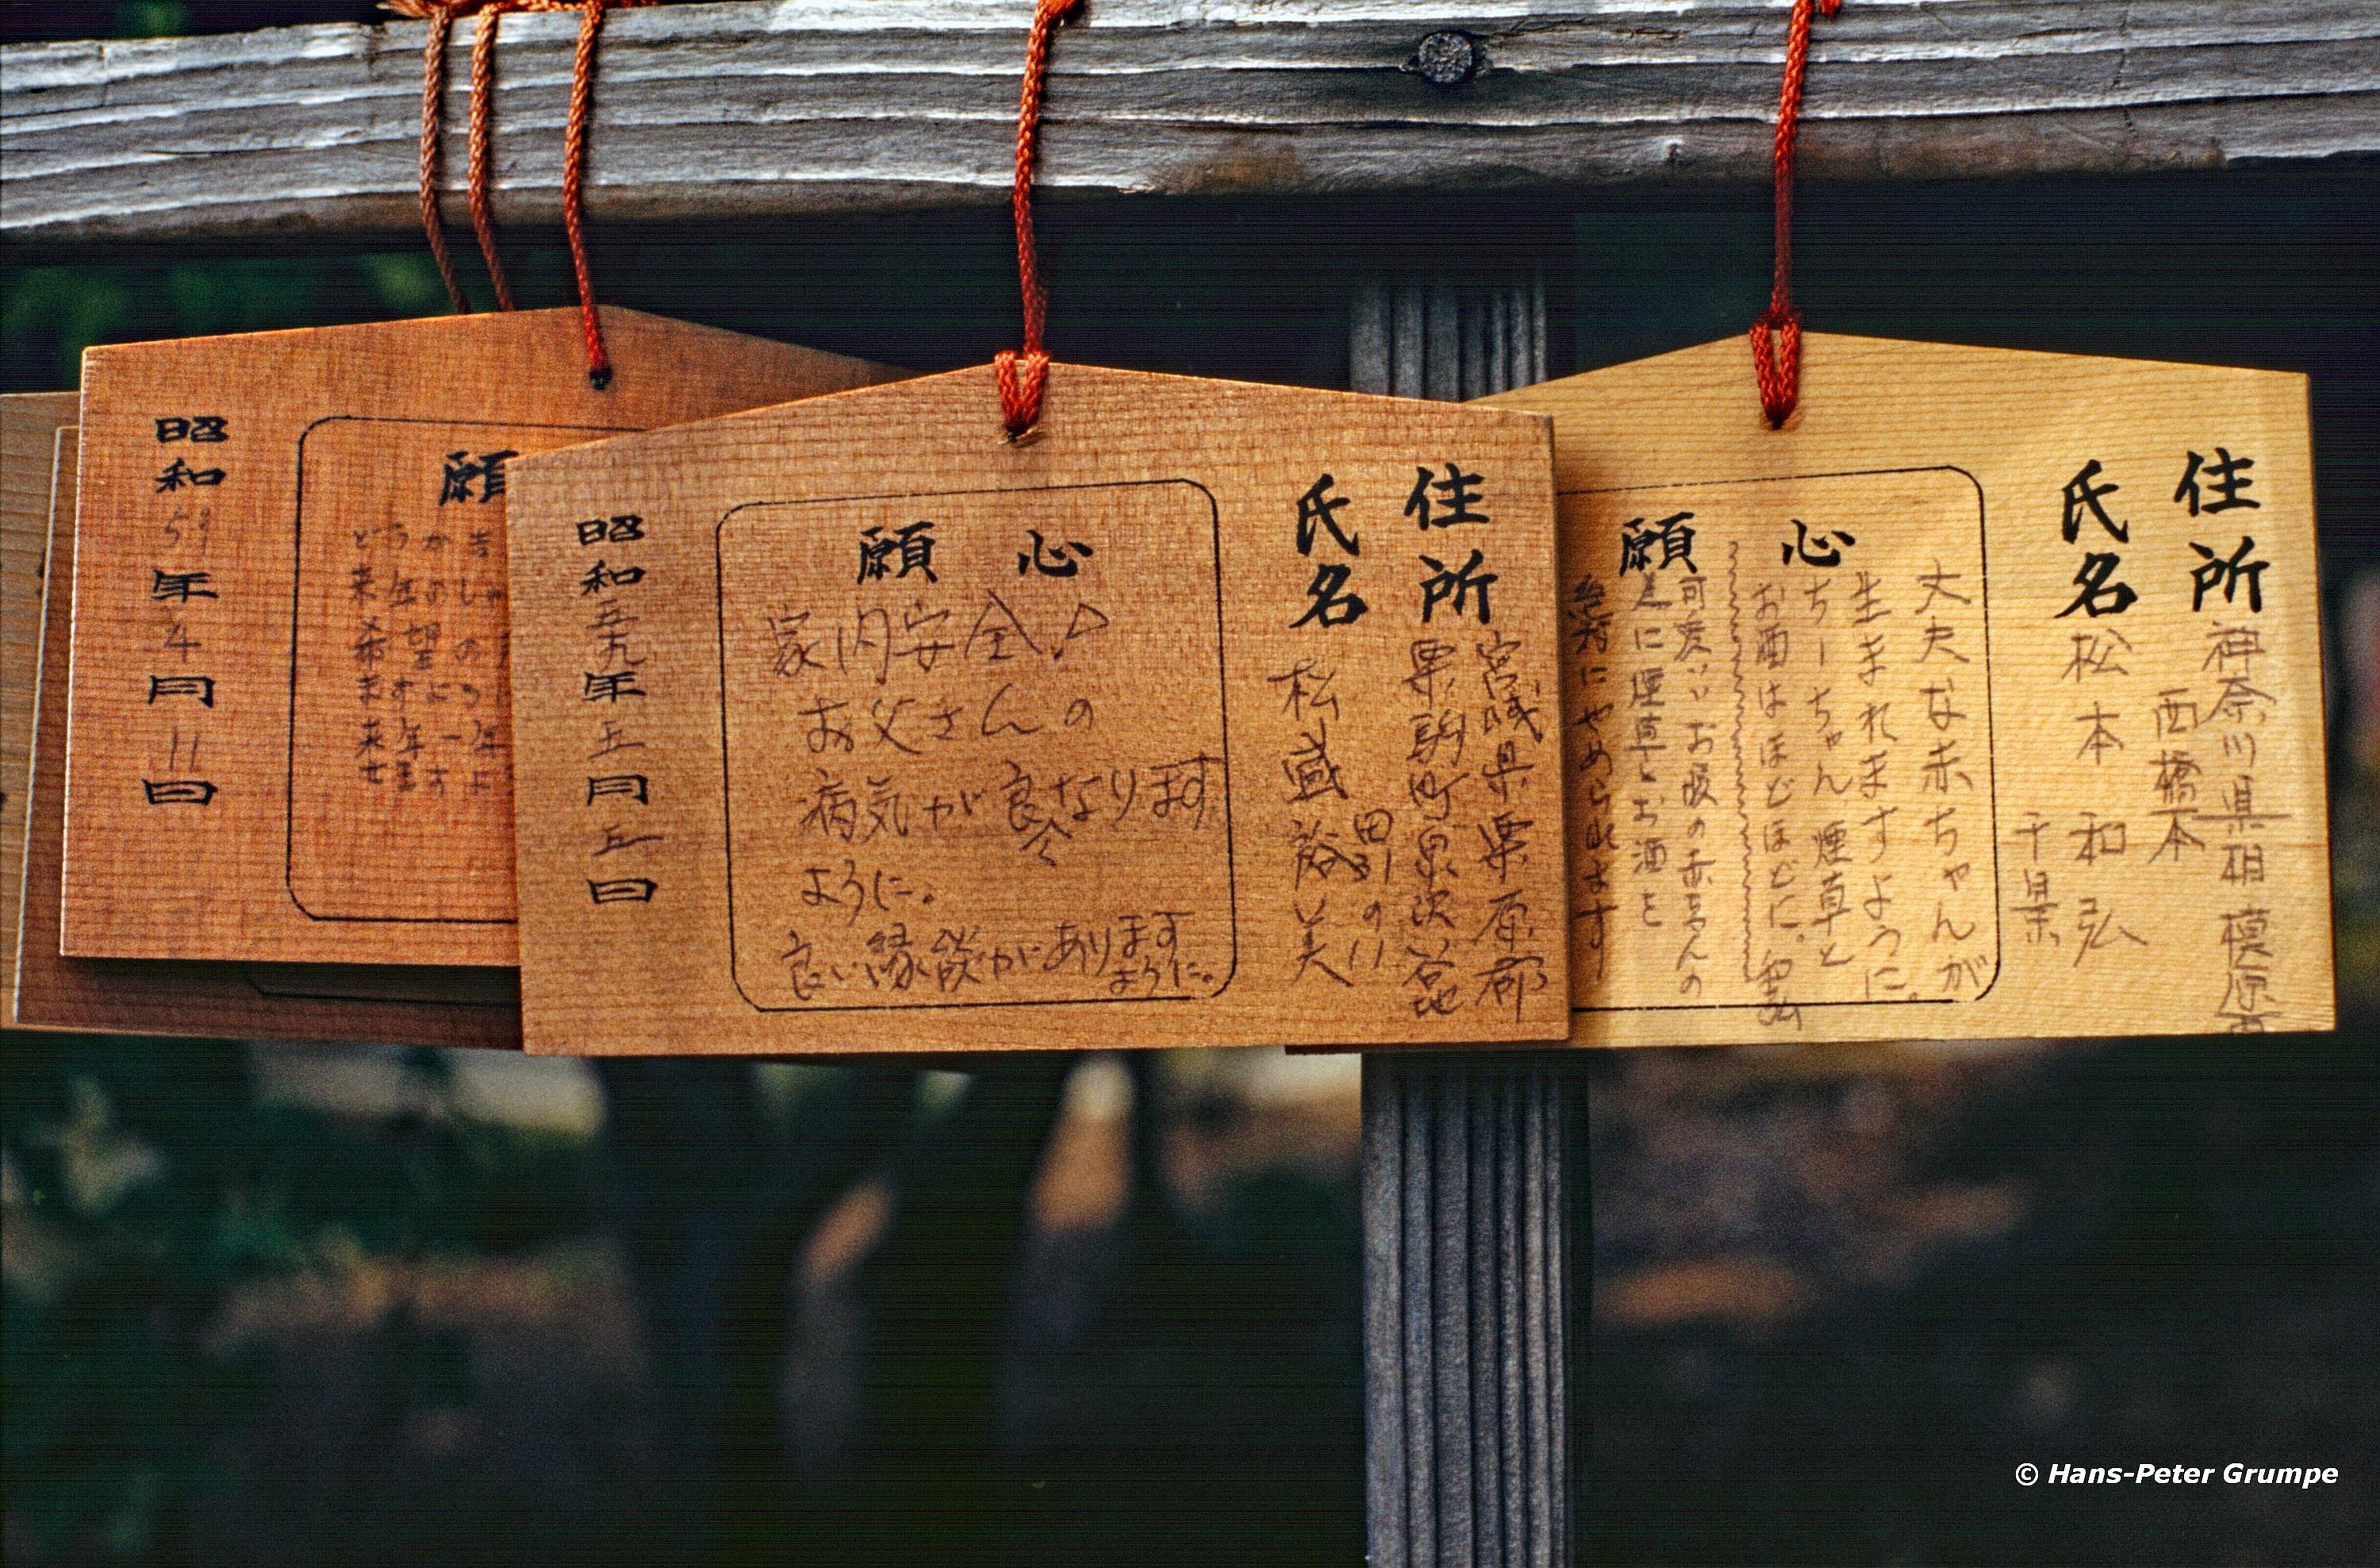 昭和59年4月11日
願
どうか
昭和五九年五月五日
心願
家内安全
お父さんの
病気が良くなります
ように。
良い縁談があります
ように。
住所
宮城県栗原郡
栗駒町
氏名
松盛裕美
住所
神奈川県相模原
西橋本
氏名
松本和弘
千景
心願
丈夫な赤ちゃんが
生まれますように。
ちーちゃん煙草と
お酒はほどほどに。和弘
可愛いお腹の赤ちゃんの
為に煙草とお酒を
絶対にやめられます
© Hans-Peter Grumpe